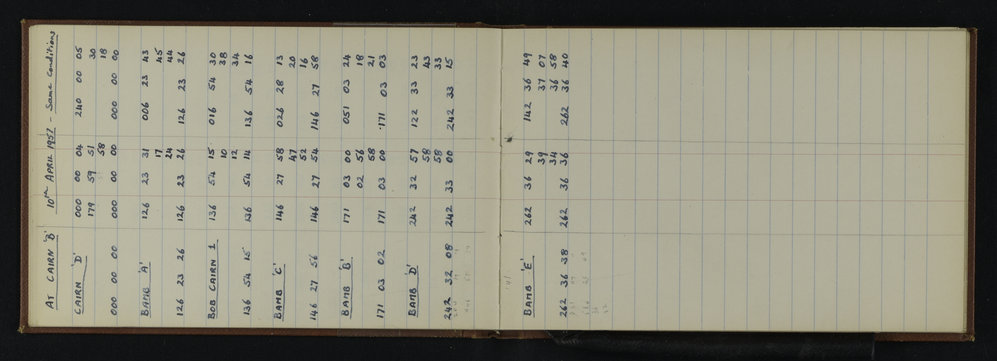 AT CAIRN 'B' 10th APRIL 1957 - Same Conditions
CAIRN 'D' 000 00 04 240 00 05
179 59 51 30
58 18
000 00 00 000 00 00 000 00 00
BAMB 'A' 126 23 31 006 23 43
17 45
24 44
126 23 26 126 23 26 126 23 26
BOB CAIRN 1 136 54 15 016 54 30
10 38
12 34
136 54 15 136 54 14 136 54 16
BAMB 'C' 146 27 58 026 28 13
47 20
52 16
146 27 56 146 27 54 146 27 58
BAMB 'B' 171 03 00 051 03 24
02 56 18
58 21
171 03 02 171 03 00 171 03 03
BAMB 'D' 242 32 57 122 33 23
58 43
58 33
242 32 08 242 33 00 242 33 15
BAMB 'E' 262 36 29 142 36 49
39 37 07
34 36 58
262 36 38 262 36 36 262 36 40